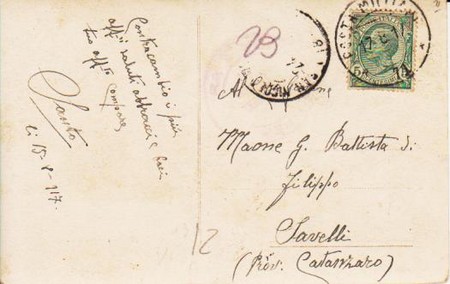 Contracambio i più
aff.i saluti abbracci e baci
tuo aff. compare
Santo
li 15-8-917
28
POSTA MILITARE
Al
Maone G. Battista di
Filippo
Savelli
(Prov. Catanzaro)
12